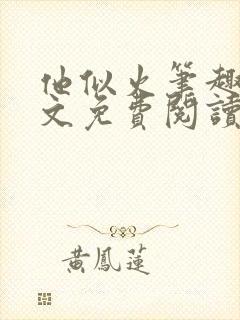 他似火筆趣
文免費閱讀
黃鳳蓮